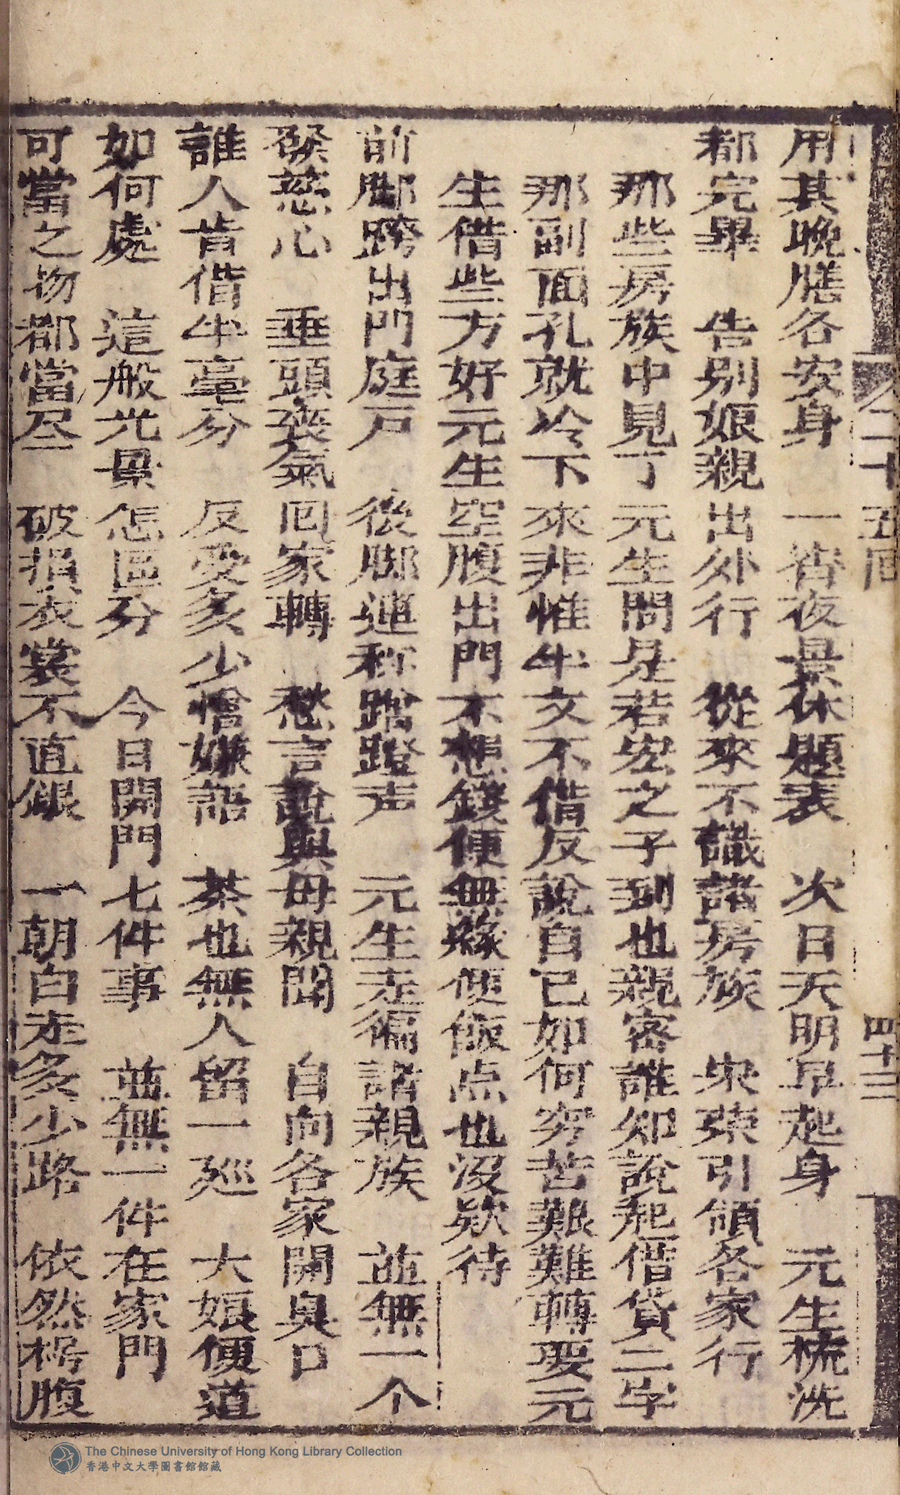 二十五回
四十三
用其晚膳各安身　一宵夜景休題表　次日天明早起身　元生梳洗
都完畢　告别娘親出外行　從來不識諸房族　央求引領各家行
那些房族中見了元生問是若宏之子到也親密誰知說起借貸二字
那副面孔就冷下來非惟半文不借反說自已如何穷苦艱難轉要元
生借些方好元生空腹出門不想錢便無緣便飯点也没欵待
前脚跨出門庭戶　後脚連称蹭蹬声　元生走徧諸親族　並無一个
發慈心　垂頭喪氣囘家轉　愁言說與母親聞　自向各家開臭口
誰人肯借半毫分　反受多少憎嫌語　茶也無人留一廵　大娘便道
如何處　這般光景怎區分　今日開門七件事　並無一件在家門
可當之物都當尽　破損衣裳不直銀　一朝白走多少路　依然枵腹
The Chinese University of Hong Kong Library Collection
香港中文大學圖書館館藏